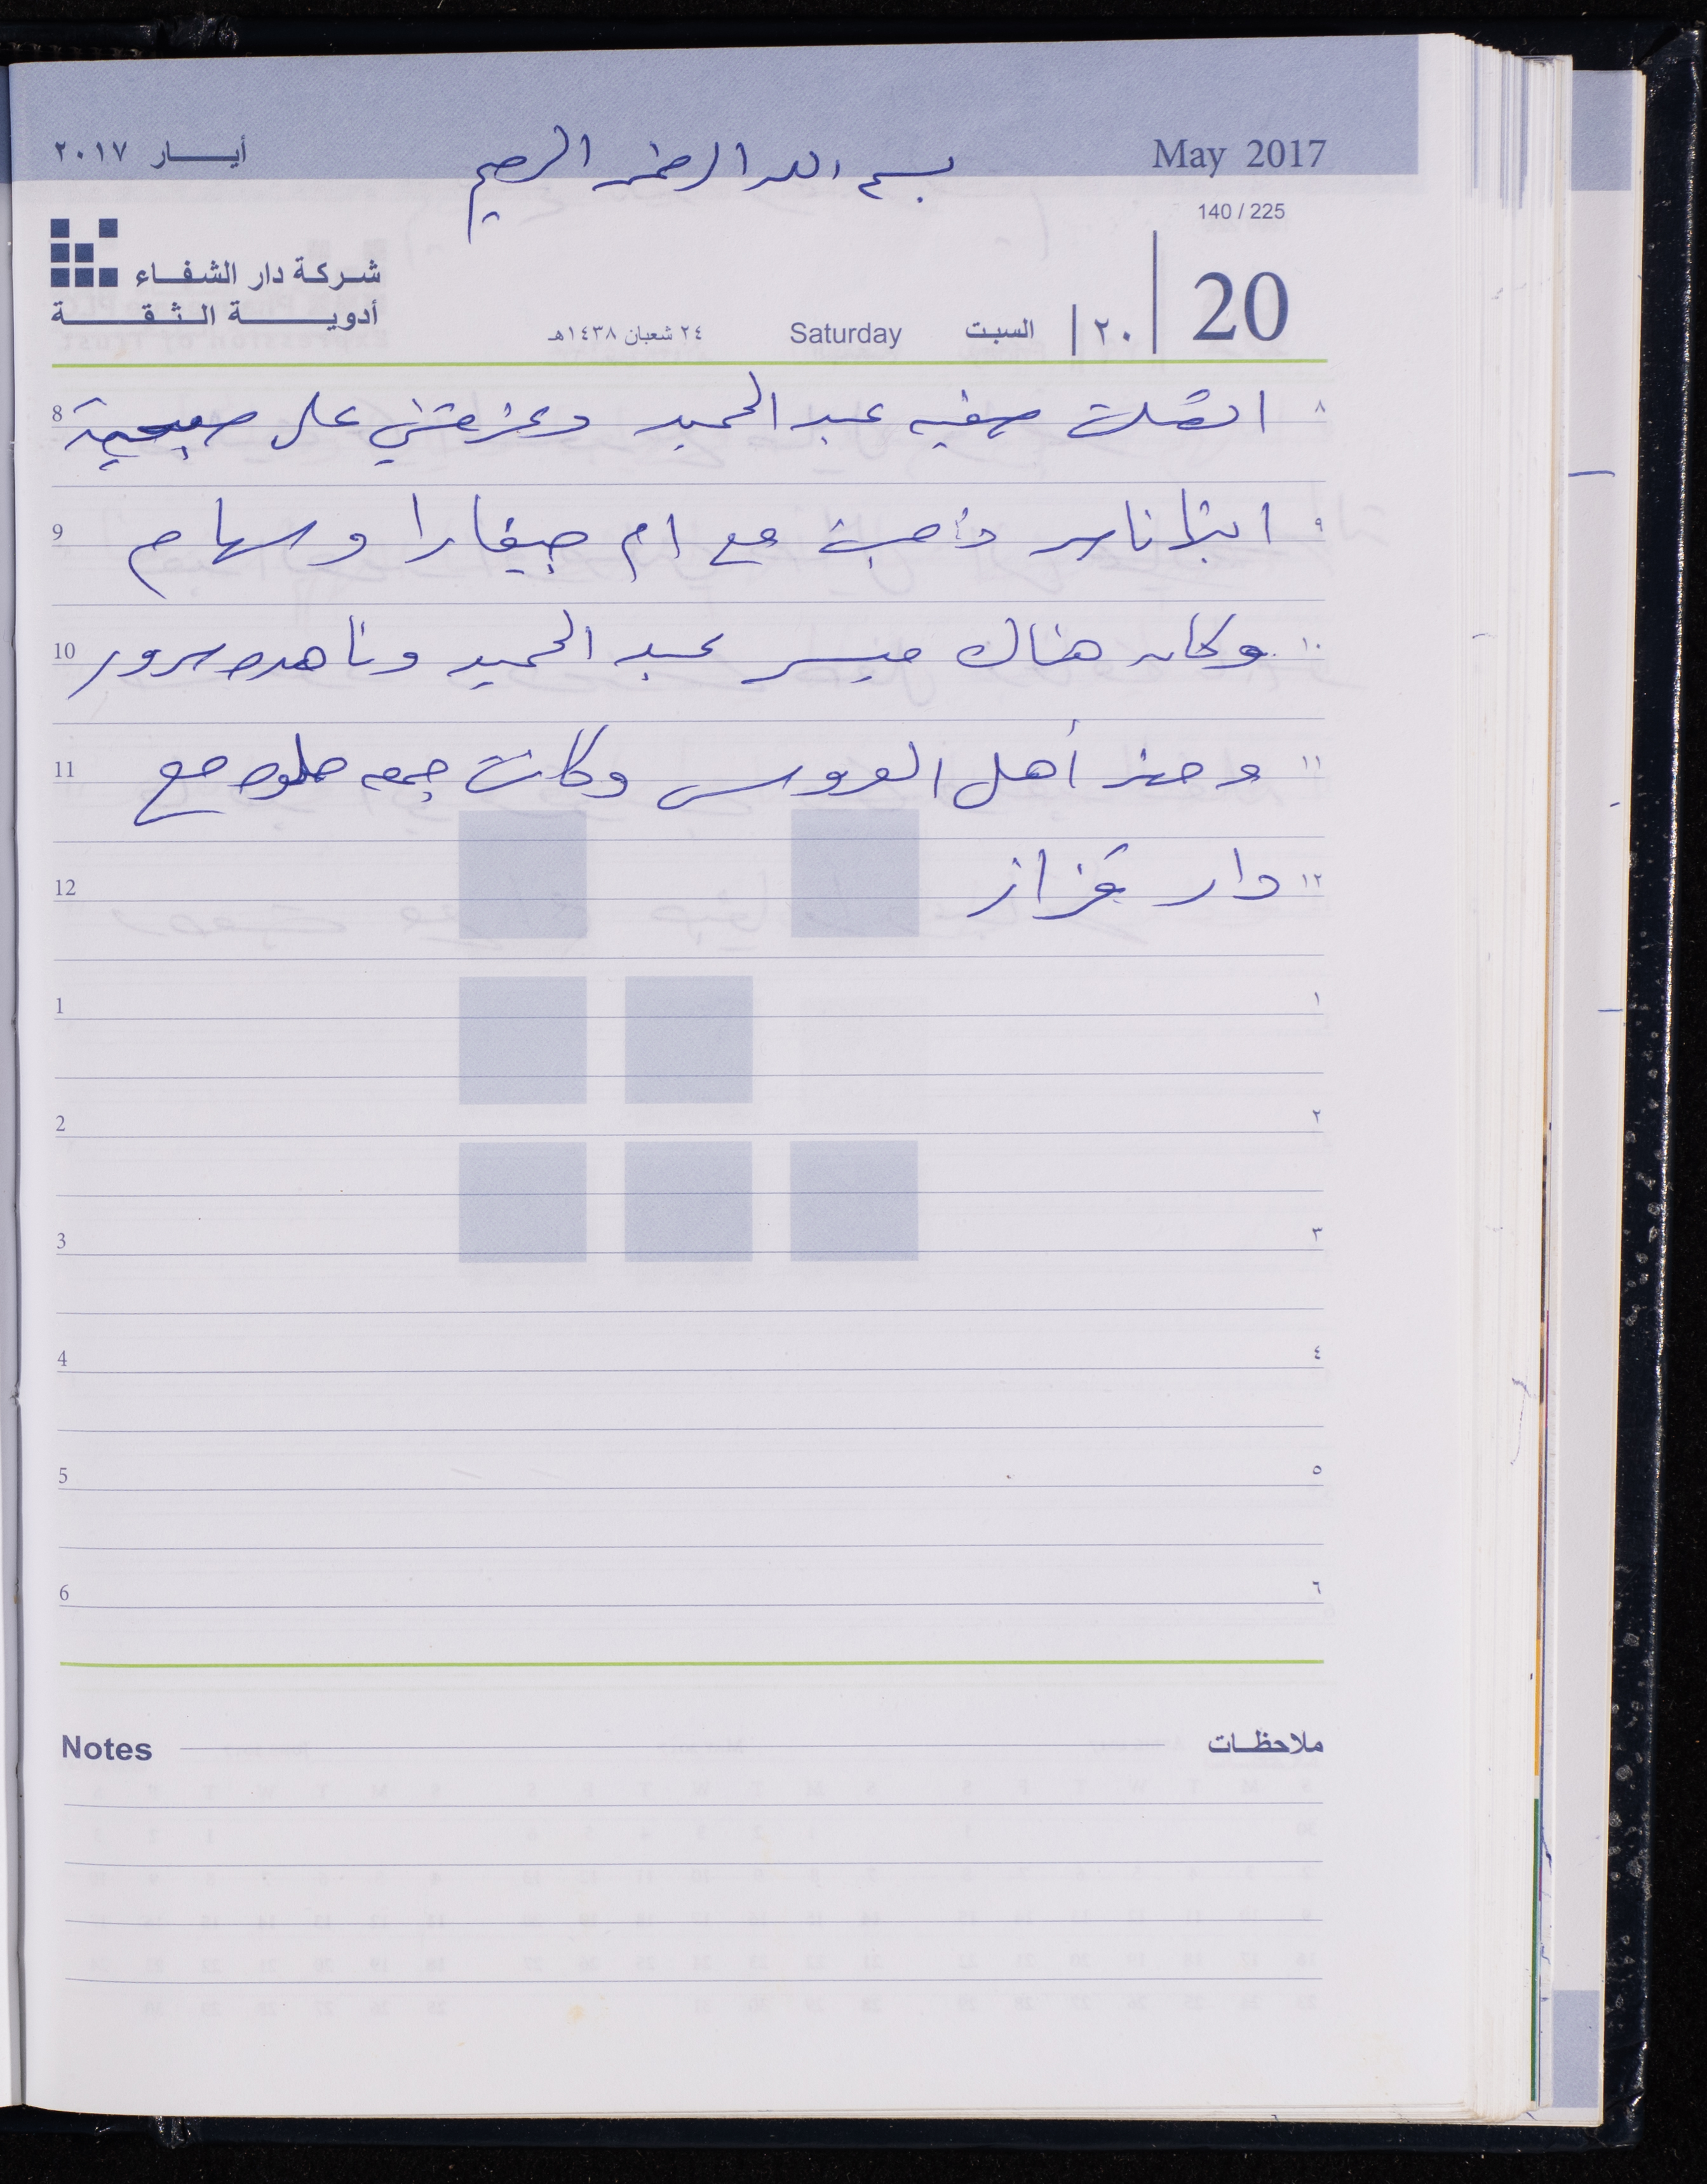 أيــار ٢٠١٧
بسم الله الرحمن الرحيم
May 2017
140 / 225
شركة دار الشفاء
أدويــة الـثـقـة
20
٢٠
السبت
Saturday
٢٤ شعبان ١٤٣٨هـ
٨ اتصلت صفيه عبد الحميد وعزمتني على صبحية 8
٩ ابنها ناصر ذهبت مع ام جيفارا وسهام 9
١٠ وكان هناك ميسر عبد الحميد وناهده سرور 10
١١ وحضر أهل العروس وكانت جمعه حلوه مع 11
١٢ دار قزاز 12
١ 1
٢ 2
٣ 3
٤ 4
٥ 5
٦ 6
Notes ملاحظات